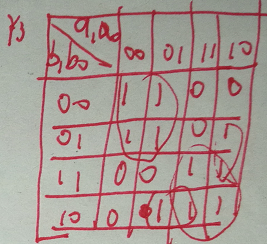 Y3 a1a0
b1b0 00 01 11 10
00 1 1 0 0
01 1 1 0
11 0 0 1
10 0 1 1 1